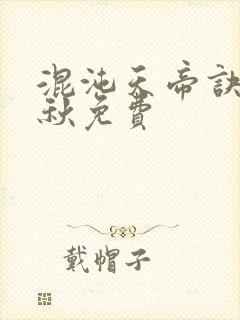 混沌天帝訣
秋免費
戴帽子